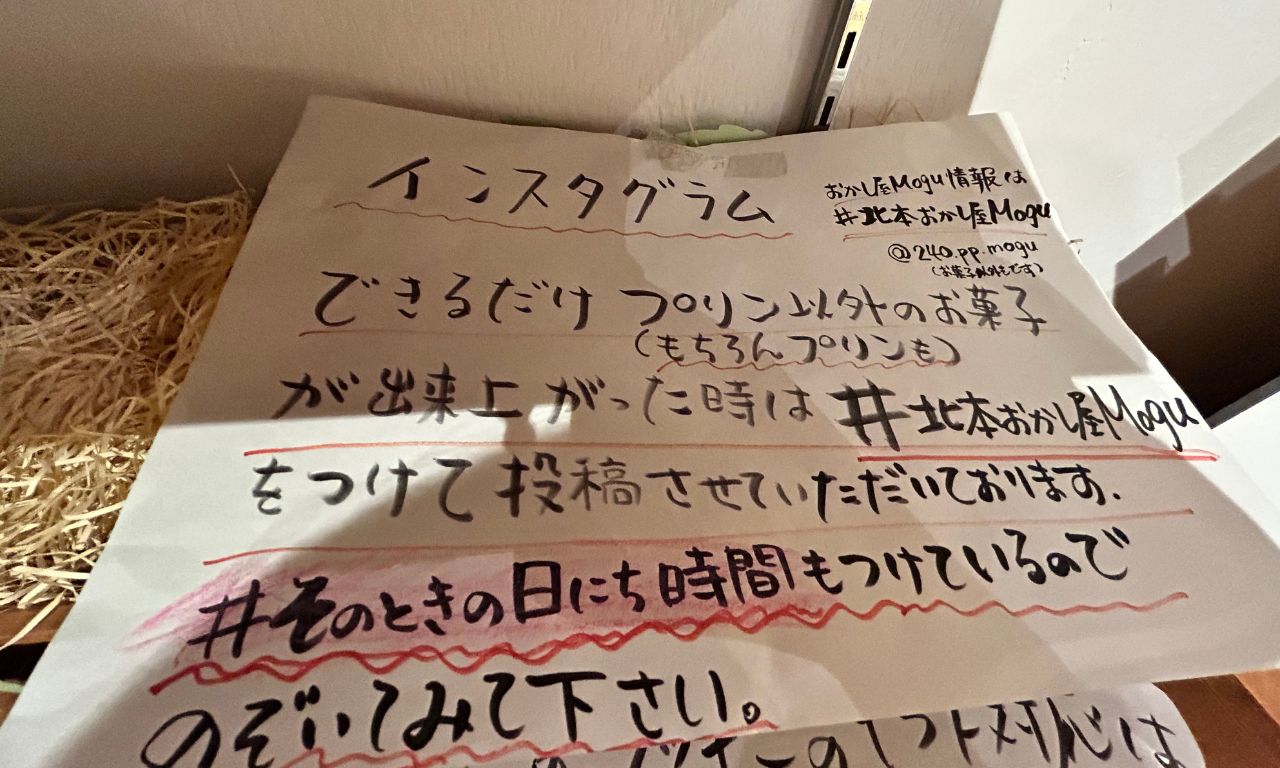 インスタグラム
おかし屋Mogu情報は
#北本おかし屋Mogu
@240.pp.mogu
(お菓子以外もです)
できるだけ プリン以外のお菓子
(もちろんプリンも)
が出来上がった時は #北本おかし屋Mogu
をつけて投稿させていただいております.
#そのときの日にち時間もつけているので
のぞいてみて下さい。
対応は